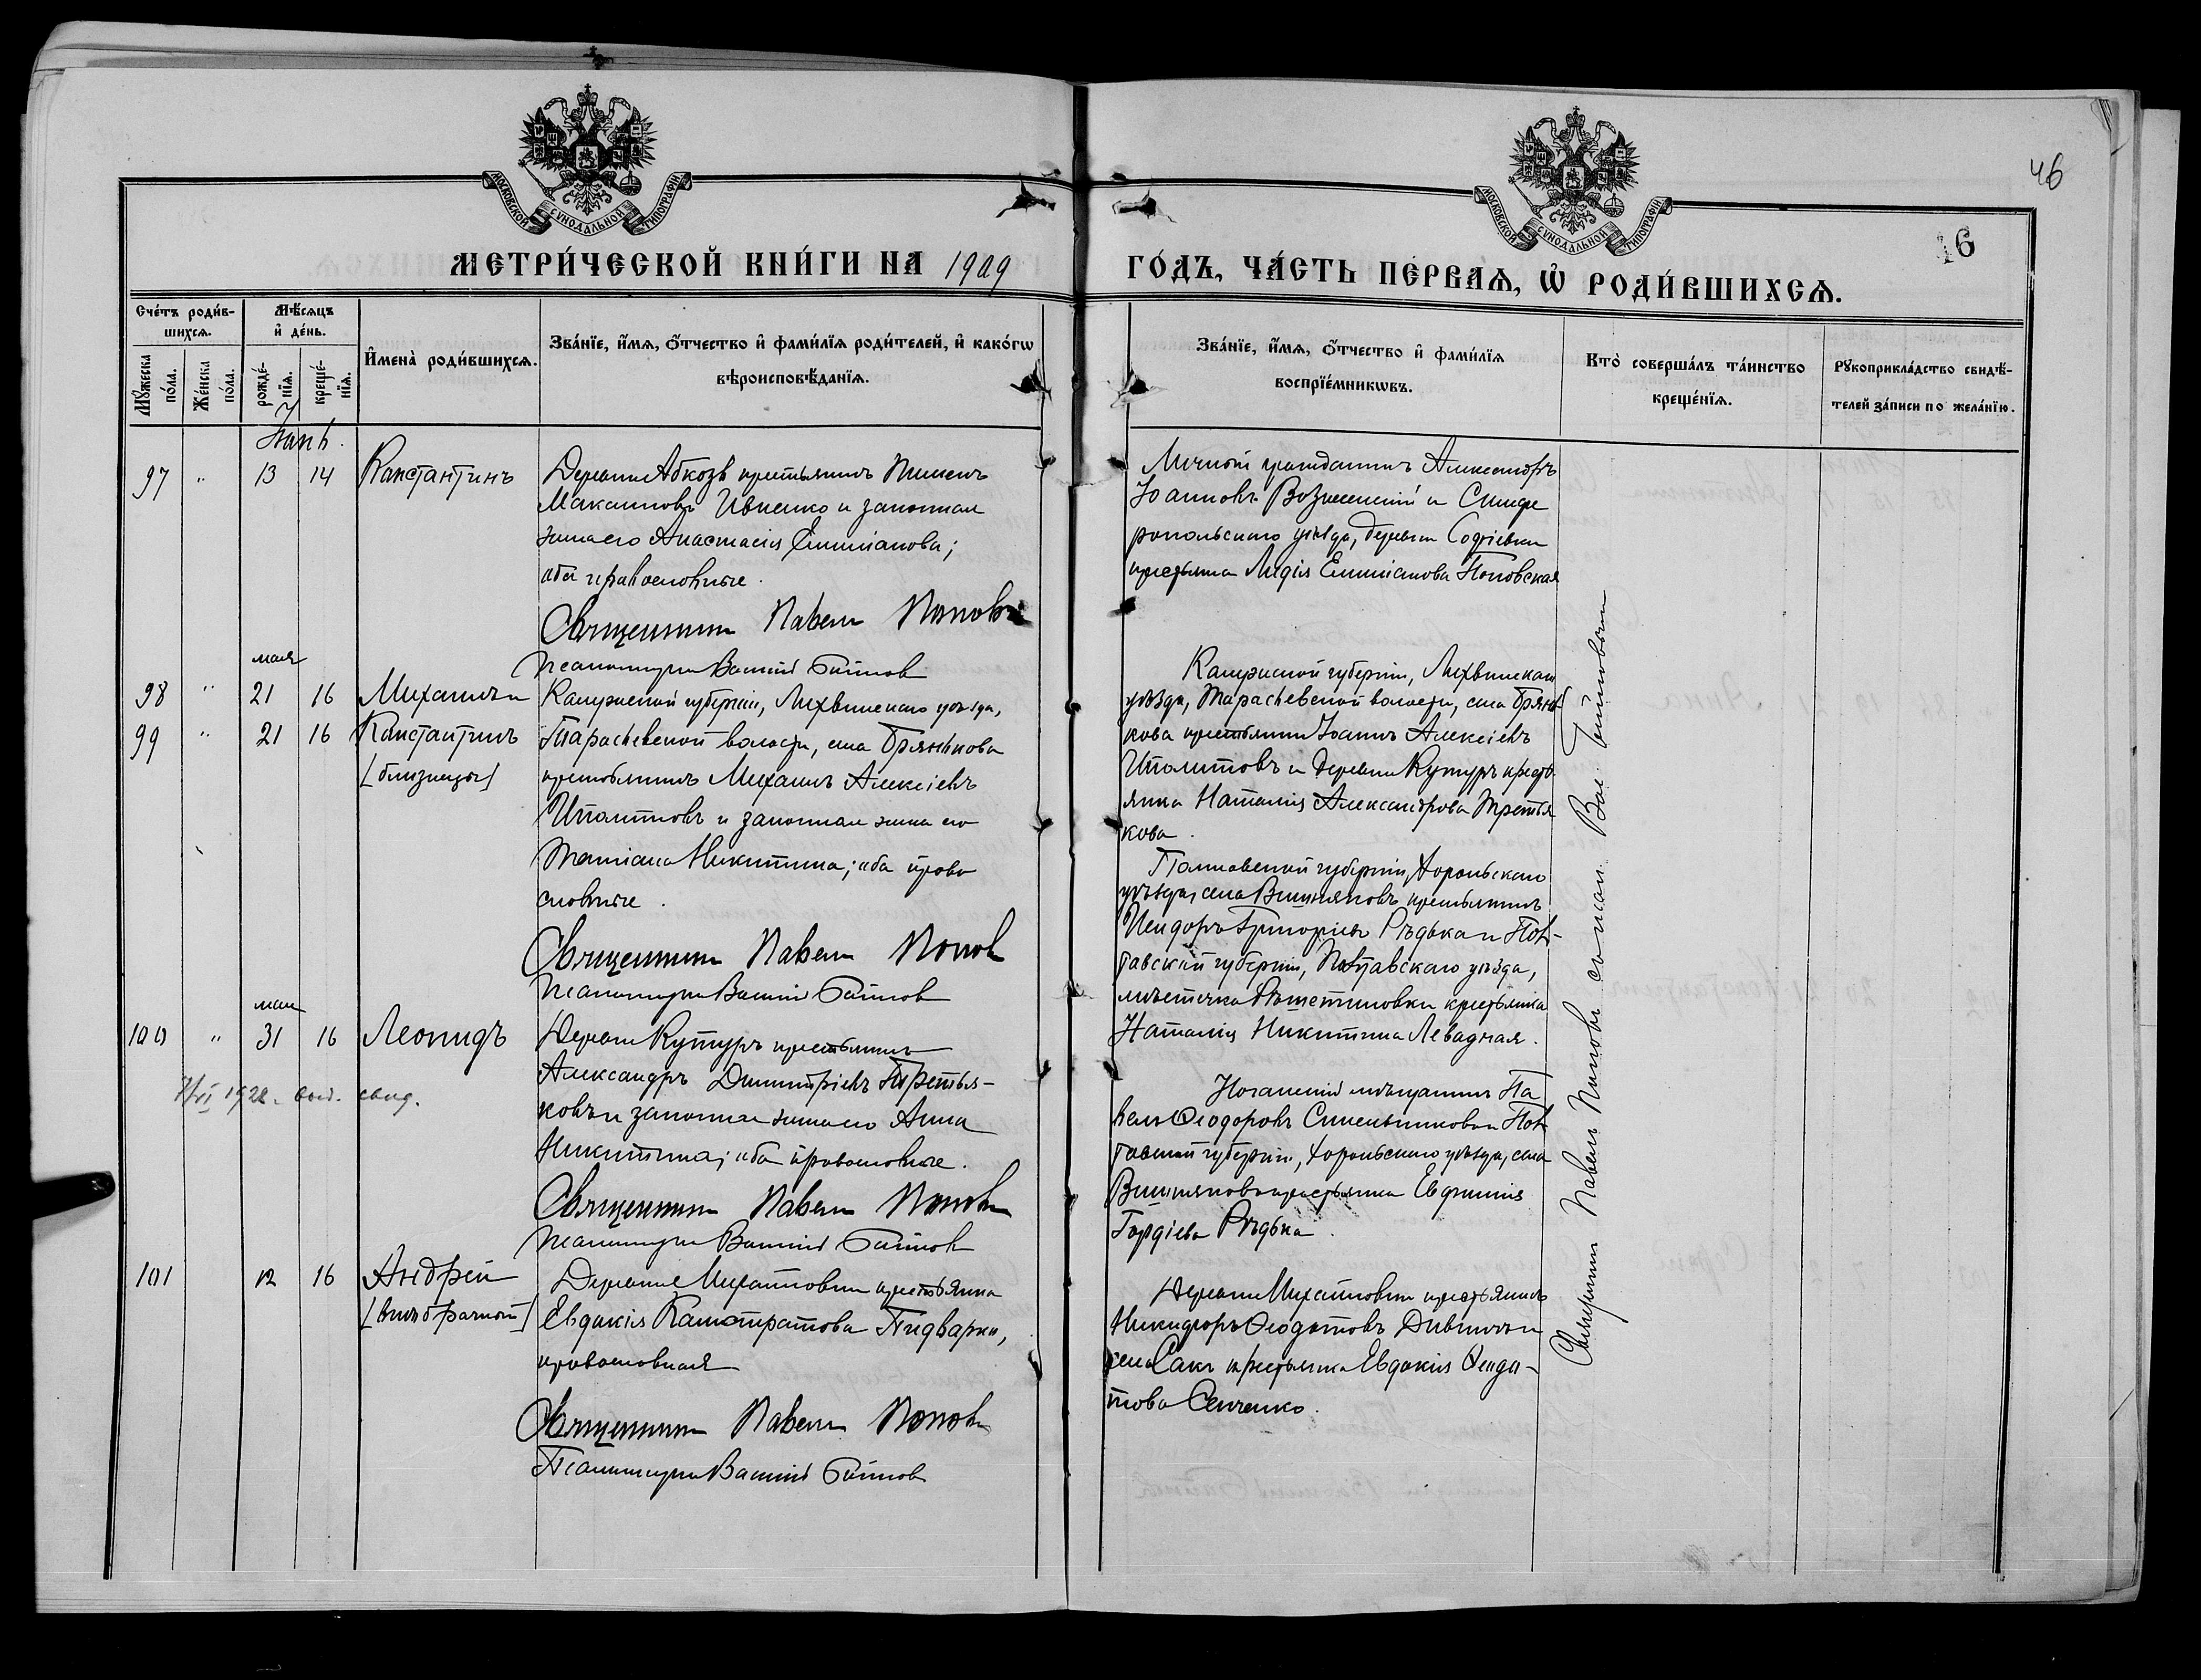 46
МОСКОВСКОЙ СѴНОДАЛЬНОЙ ТИПОГРАФІИ
МОСКОВСКОЙ СѴНОДАЛЬНОЙ ТИПОГРАФІИ
МЕТРИ́ЧЕСКОЙ КНИ́ГИ НА 1909
ГО́ДЪ, ЧА́СТЬ ПЕ́РВАѦ, Ѡ҆ РОДИ́ВШИХСѦ.
Сче́тъ роди́в-
шихсѧ.
Мꙋ́жеска по́ла.
Же́нска по́ла.
Мѣ́сѧцъ
и҆ де́нь.
рожде́-
нїѧ.
креще́-
нїѧ.
И҆мена̀ роди́вшихсѧ.
Зва́нїе, и҆́мѧ, ѻ҆́тчество и҆ фами́лїѧ роди́телей, и҆ како́гѡ
вѣроисповѣ́данїѧ.
Зва́нїе, и҆́мѧ, ѻ҆́тчество и҆ фами́лїѧ
воспрїе́мникѡвъ.
Кто̀ соверша́лъ та́инство
креще́нїѧ.
Рꙋкоприкла́дство свидѣ́-
телей за́писи по жела́нїю.
Іюнь.
97 " 13 14 Константинъ
Деревни Абкозы крестьянинъ Пименъ
Максимовъ Ивненко и законная
жена его Анастасія Емиліанова;
оба православные.
Священникъ Павелъ Поповъ
Псаломщикъ Василій
Личной гражданинъ Александръ
Іоанновъ Вознесенскій и Симфе
ропольскаго уѣзда, деревни Софіевки
крестьянка Лидія Емиліанова Поповская
мая
98 " 21 16 Михаилъ и
99 " 21 16 Константинъ
[близнецы]
Калужской губерніи, Лихвинскаго уѣзда,
Тарасьевской волости, села Брянькова
крестьянинъ Михаилъ Алексіевъ
Иполитовъ и законная жена его
Татіана Никитина; оба право
славные.
Священникъ Павелъ Поповъ
Псаломщикъ Василій
Калужской губерніи, Лихвинскаго
уѣзда, Тарасьевской волости, села Брянь
кова крестьянинъ Іоаннъ Алексіевъ
Иполитовъ и деревни Кунтуръ кресть
янка Наталія Александрова Третья
кова.
Полтавской губерніи, Хорольскаго
уѣзда, села Вишняковъ крестьянинъ
Исидоръ Григорьевъ Рѣдька и Пол-
тавской губерніи, Полтавскаго уѣзда,
мѣстечка Рѣшетиловки крестьянка
Наталія Никитина Левадная.
мая
100 " 31 16 Леонидъ
Деревни Кунтуръ крестьянинъ
Александръ Димитріевъ Третья-
ковъ и законная жена его Анна
Никитина; оба православные.
Священникъ Павелъ Поповъ
Псаломщикъ Василій
1928 выд. свид.
Ногайскій мѣщанинъ Па
велъ Ѳеодоровъ Синельниковъ и Пол
тавской губерніи, Хорольскаго уѣзда, села
Вишняковъ крестьянка Евфимія
Гордіева Рѣдька.
101 12 16 Андрей
[внѣбрачной]
Деревни Михайловки крестьянка
Евдокія Калистратова Пидварко,
православная
Священникъ Павелъ Поповъ
Псаломщикъ Василій
Деревни Михайловки крестьянинъ
Никифоръ Ѳеодотовъ и
села Сакъ крестьянка Евдокія Ѳеодо-
това Сенченко.
Священникъ Павелъ Поповъ съ псал. Вас.